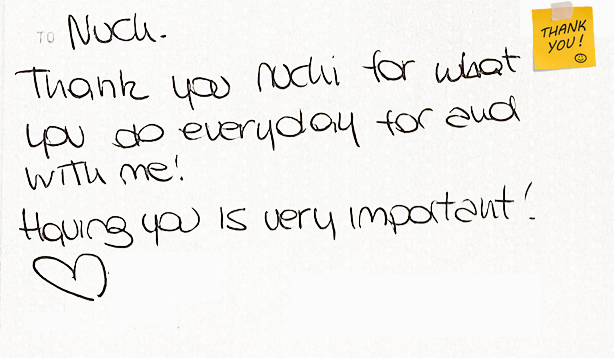 TO Nuch.
THANK
YOU!
Thank you nuchi for what
you do everyday for and
with me!
Having you is very important!